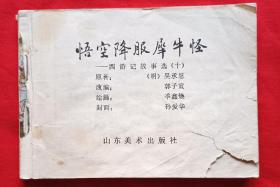 悟空降服犀牛怪
——西游记故事选(十)
原著：(明)吴承恩
改编：郭子宣
绘画：季鑫焕
封面：孙爱华
山东美术出版社